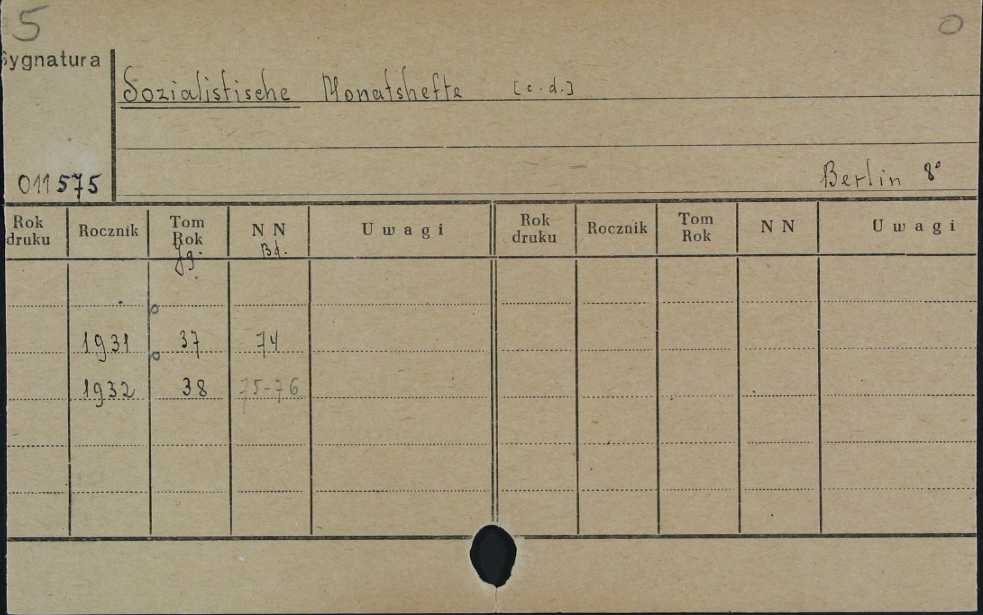 5 0
Sygnatura
Sozialistische Monatshefte [c.d.]
011575 Berlin 8°
Rok druku Rocznik Tom Rok Jg. N N Bd. Uwagi Rok druku Rocznik Tom Rok N N Uwagi
1931 37 74
1932 38 75-76